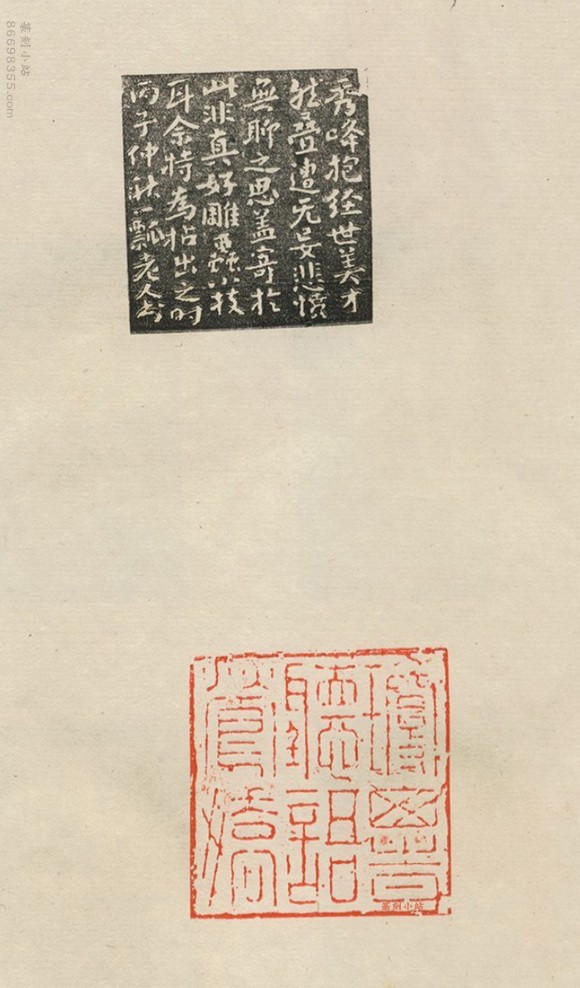 秀峰抱経世美才
然叠遭无妄悲憤
無聊之思盖寄於
此非真好雕蟲小技
耳余特為拈出之时
丙子仲秋一瓢老人书
聽
篆刻小站
86698355.com
篆刻小站